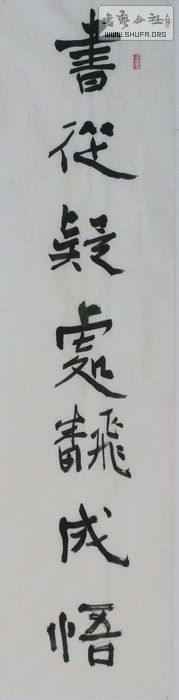 書從疑處飜成悟
書藝公社
WWW.SHUFA.ORG